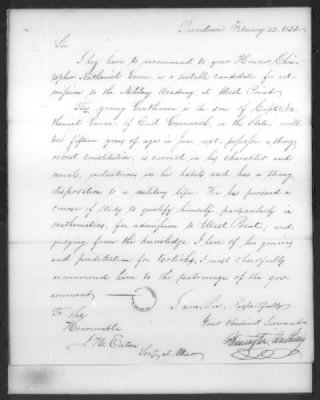 Providence February 22. 1830.
Sir
I beg leave to recommend to your Honour, Chris-
topher Nathaniel Greene as a suitable candidate for ad-
mission to the Military Academy, at West Point.
The young Gentleman is the son of Capt. Na-
thaniel Greene, of East Greenwich, in this State, will
be fifteen years of age in June next, possesses a strong
robust constitution, is correct in his character and
morals, industrious in his habits and has a strong
disposition to a military life. He has pursued a
course of study to qualify himself, particularly in
mathematics, for admission to West Point, and,
judging from the knowledge I have of his genius
and predilection for tacticks, I most cheerfully
recommend him to the patronage of the gov-
ernment.
I am, Sir, Respectfully
Your Obedient Servant
To the
Honourable
J. H. Eaton
Secy. of War